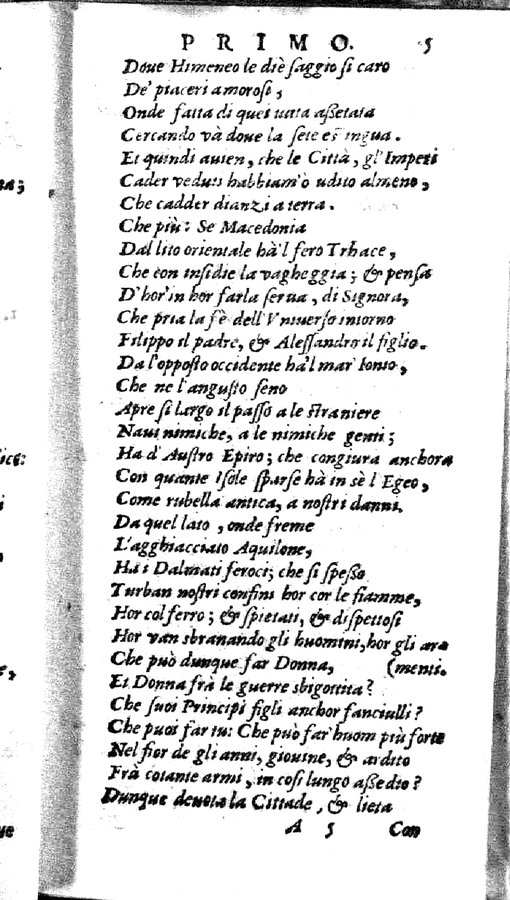 PRIMO. 5
Doue Himeneo le diè ſaggio ſi caro
De' piaceri amoroſi,
Onde fatta di quei tutta aſſetata
Cercando và doue la ſete eſtingua.
Et quindi auien, che le Città, gl'Imperi
Cader veduti habbiam'ò udito almeno,
Che cadder dianzi a terra.
Che più: Se Macedonia
Dal lito orientale hà'l fero Trhace,
Che con inſidie la vagheggia; & penſa
D'hor'in hor farla ſerua, di Signora,
Che pria la fè dell'Vniuerſo intorno
Filippo il padre, & Aleſſandro il figlio.
Da l'oppoſto occidente hà'l mar' Ionio,
Che ne l'anguſto ſeno
Apre ſi largo il paſſo a le ſtraniere
Naui nimiche, a le nimiche genti;
Ha d'Auſtro Epiro; che congiura anchora
Con quante Iſole ſparſe hà in sè l'Egeo,
Come rubella antica, a noſtri danni.
Da quel lato, onde freme
L'agghiacciato Aquilone,
Ha i Dalmati feroci; che ſi ſpeſſo
Turban noſtri confini hor cor le fiamme,
Hor col ferro; & ſpietati, & diſpettoſi
Hor van sbranando gli huomini, hor gli ara
Che può dunque far Donna, (menti.
Et Donna frà le guerre sbigottita?
Che ſuoi Principi figli anchor fanciulli?
Che puoi far tu: Che può far'huom più forte
Nel fior de gli anni, giouine, & ardito
Frà cotante armi, in coſi lungo aſſedio?
Dunque deuota la Cittade, & lieta
A 5 Con